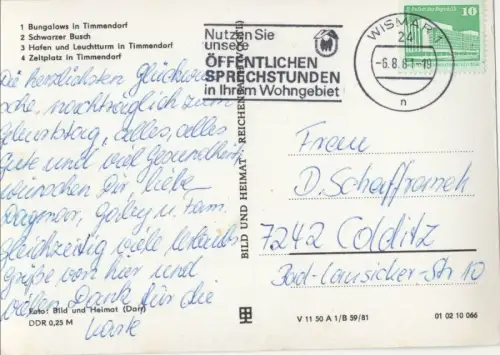 1 Bungalows in Timmendorf
2 Schwarzer Busch
3 Hafen und Leuchtturm in Timmendorf
4 Zeltplatz in Timmendorf
Die herzlichsten Glückwün
sche, nachträglich zum
Geburtstag, alles, alles
Gute und viel Gesundheit
wünschen Dir, liebe
Dagmar, Gaby u. Fam.
gleichzeitig viele Urlaubs
grüße von hier und
vielen Dank für die
Karte
Foto: Bild und Heimat (Darr)
DDR 0,25 M
BILD UND HEIMAT · REICHENBACH (VOGTL)
Nutzen Sie
unsere
ÖFFENTLICHEN
SPRECHSTUNDEN
in Ihrem Wohngebiet
WISMAR 1
24
-6.8.81-19
n
10
Frau
D. Schaffranek
7242 Colditz
Bad-Lausicker-Str 10
V 11 50 A 1/B 59/81
01 02 10 066